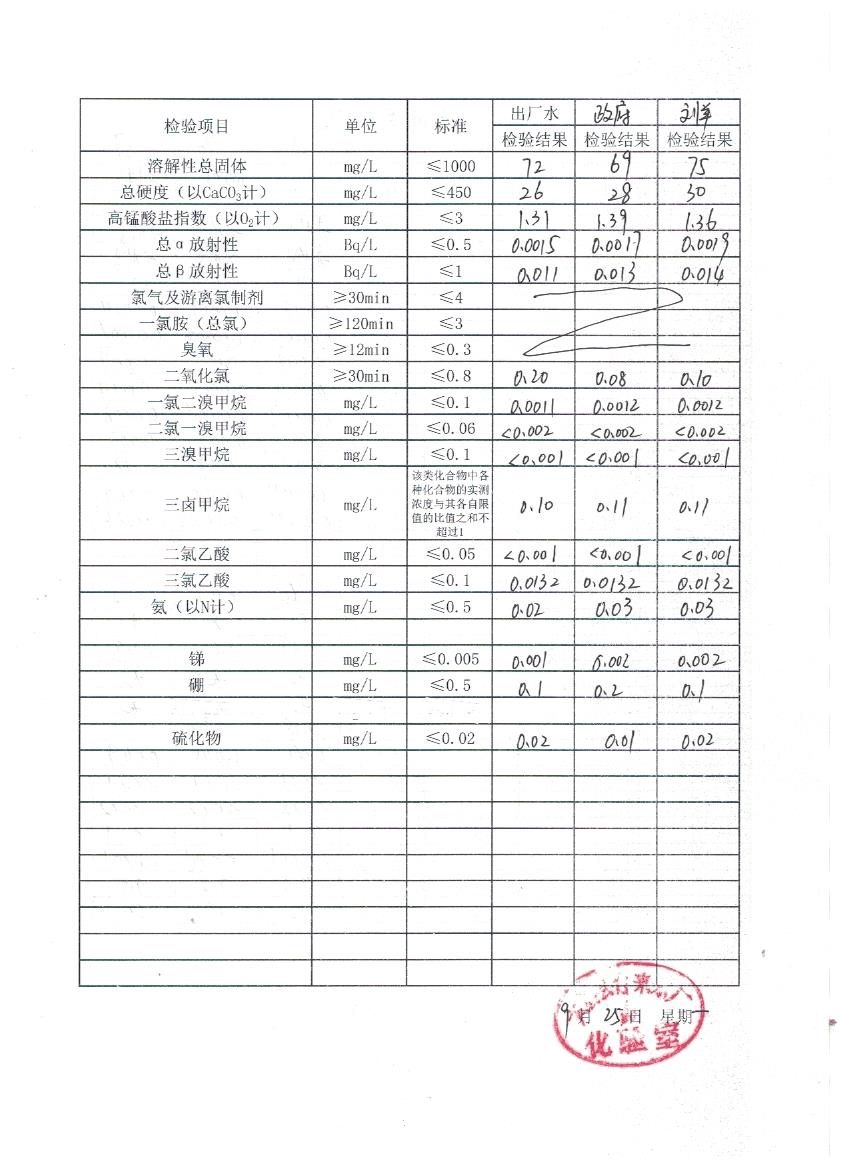 检验项目 单位 标准 出厂水 政府 刘草
检验结果 检验结果 检验结果
溶解性总固体 mg/L ≤1000 72 69 75
总硬度（以CaCO₃计） mg/L ≤450 26 28 30
高锰酸盐指数（以O₂计） mg/L ≤3 1.31 1.39 1.36
总α放射性 Bq/L ≤0.5 0.0015 0.0017 0.0019
总β放射性 Bq/L ≤1 0.011 0.013 0.014
氯气及游离氯制剂 ≥30min ≤4
一氯胺（总氯） ≥120min ≤3
臭氧 ≥12min ≤0.3
二氧化氯 ≥30min ≤0.8 0.20 0.08 0.10
一氯二溴甲烷 mg/L ≤0.1 0.0011 0.0012 0.0012
二氯一溴甲烷 mg/L ≤0.06 <0.002 <0.002 <0.002
三溴甲烷 mg/L ≤0.1 <0.001 <0.001 <0.001
三卤甲烷 mg/L 该类化合物中各
种化合物的实测
浓度与其各自限
值的比值之和不
超过1 0.10 0.11 0.11
二氯乙酸 mg/L ≤0.05 <0.001 <0.001 <0.001
三氯乙酸 mg/L ≤0.1 0.0132 0.0132 0.0132
氨（以N计） mg/L ≤0.5 0.02 0.03 0.03
锑 mg/L ≤0.005 0.001 0.002 0.002
硼 mg/L ≤0.5 0.1 0.2 0.1
硫化物 mg/L ≤0.02 0.02 0.01 0.02
9月25日 星期一
化验室